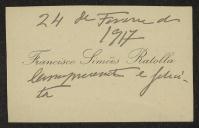 24 de Fevereiro
1917
Francisco Simões Ratolla
Cumprimenta e felici-
ta